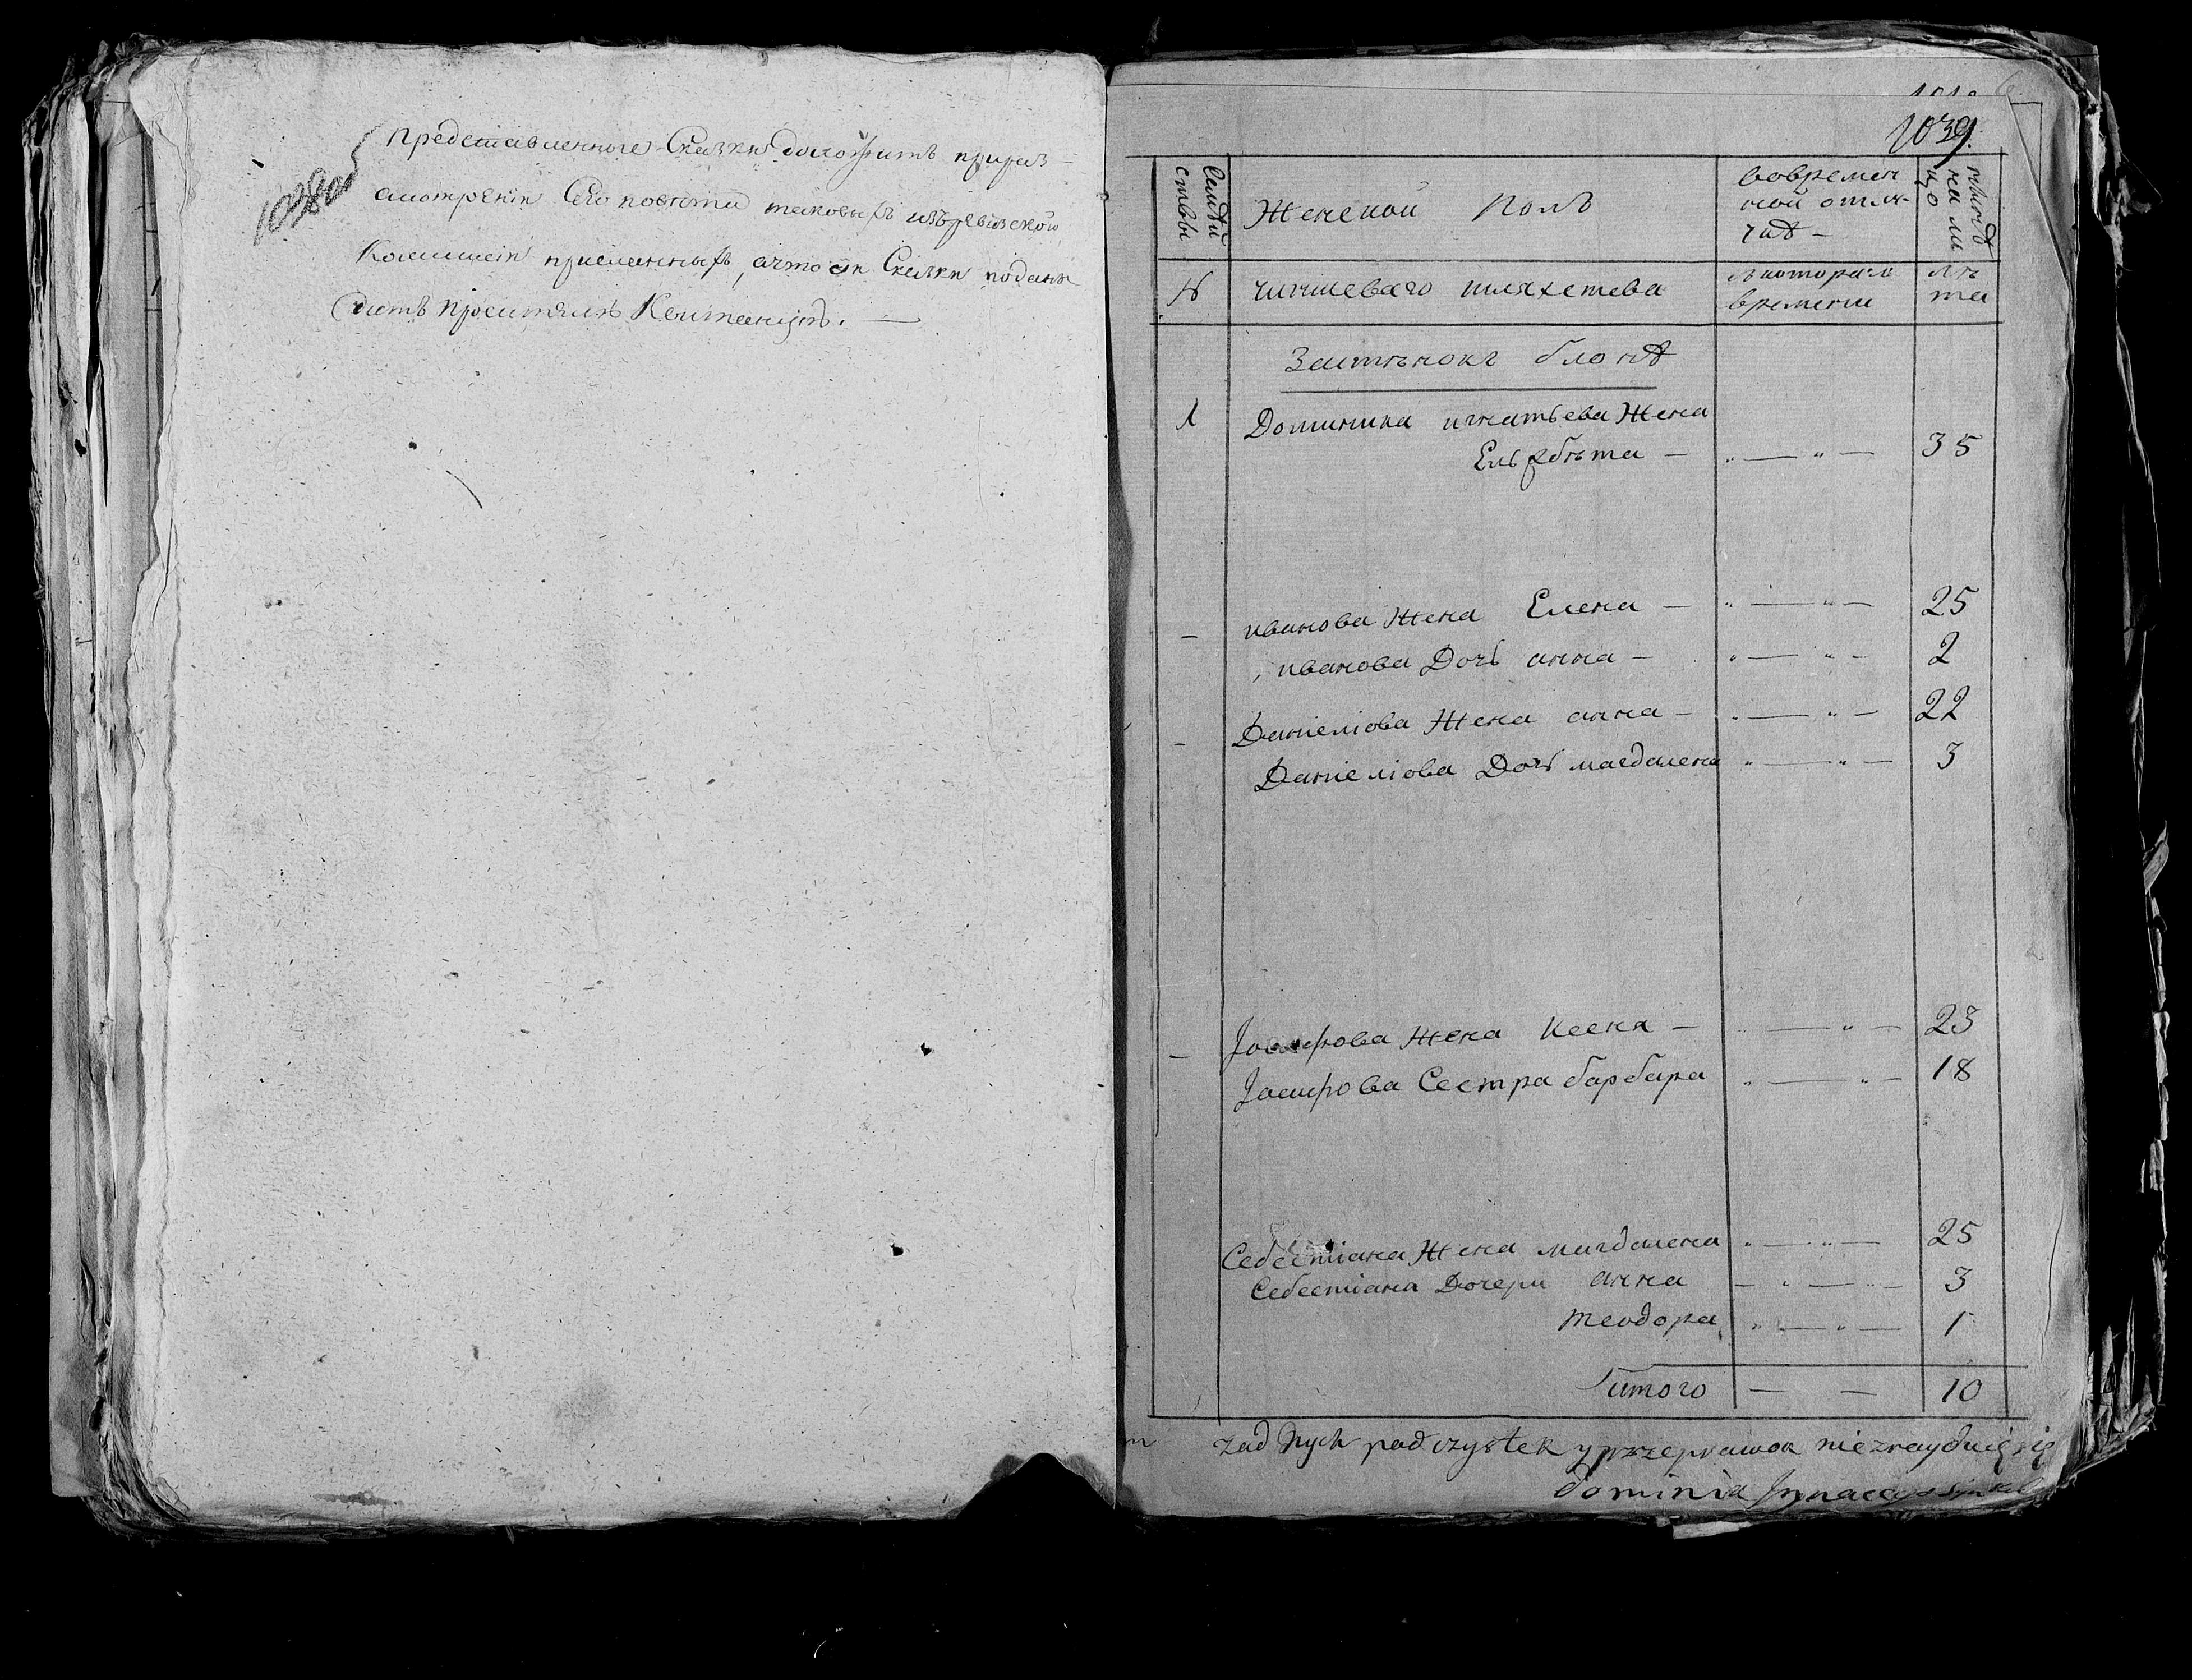 1038 об
Представленные Сказки доложить при раз-
смотреніи Сего повета таковыхъ изъ ревизской
Коммисіи присланныхъ, а что сіи Сказки поданы
дать просителямъ Квитанцію. —
1039.
Семей
ствы
Женской Полъ
вовремен
ной отлу-
чкѣ —
нынѣ
на ли
цо
№
чиншеваго шляхетева
съ котораго
времени
лѣ
та
Застѣнокъ блонѣ
1
Доминика игнатьева Жена
Ельзбѣта — " — " — 35
— иванова Жена Елена — " — " — 25
иванова Дочь анна — " — " — 2
— Даніеліова Жена анна — " — " — 22
Даніеліова Дочь магдалена " — " — 3
— Іосифова Жена Ксеня — " — " — 23
Іосифова Сестра барбара " — " — 18
Себестіана Жена магдалена " — " — 25
Себестіана Дочери анна — " — " — 3
теодора " — " — 1
итого — — 10
żadnych podczystek y przeprawok nieznayduię się
Dominik